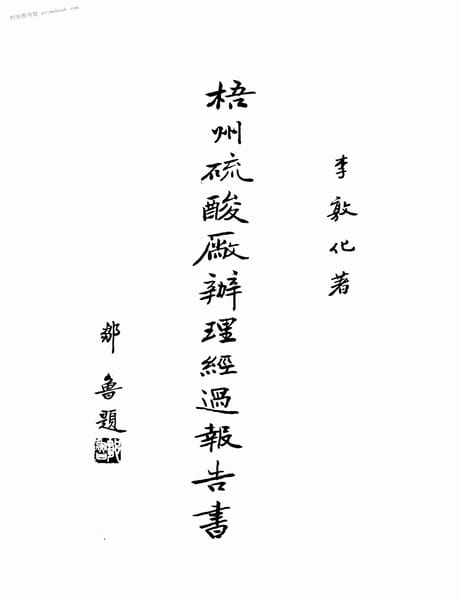 时光图书馆
李敦化著
梧州硫酸厰辦理經過報告書
鄒魯題